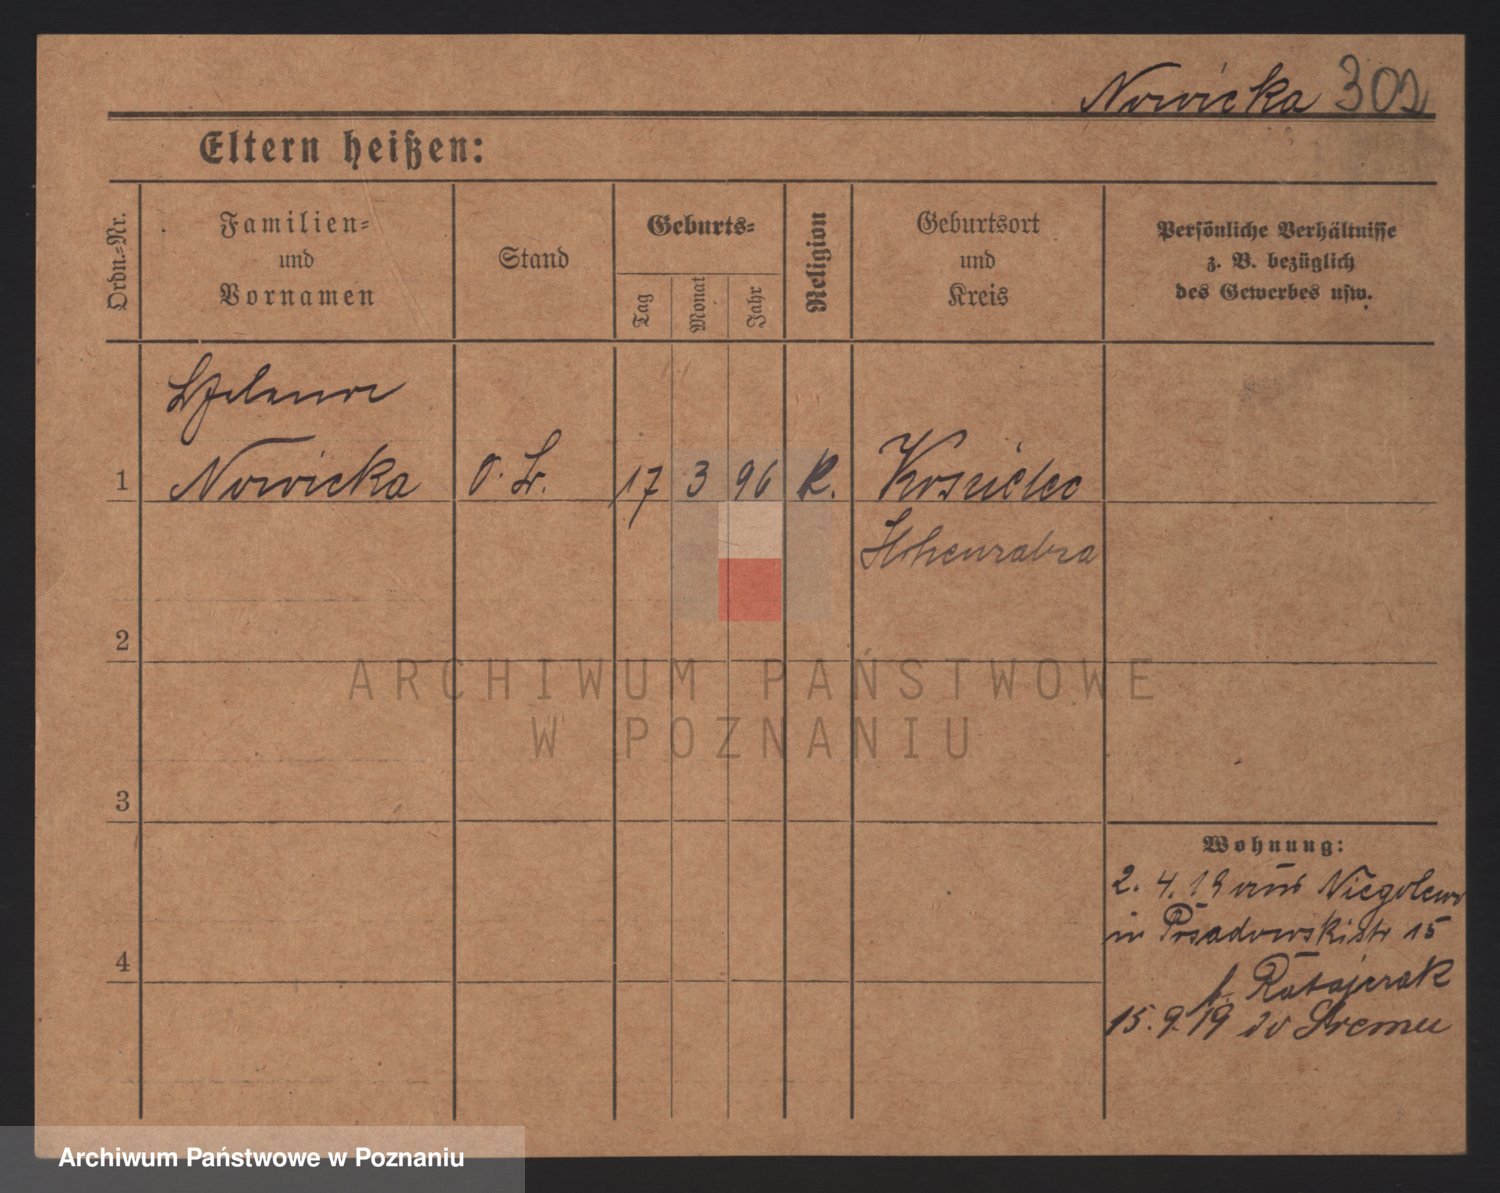 Nowicka 302
Eltern heißen:
Ordn.-Nr.
Familien-
und
Vornamen
Stand
Geburts-
Tag
Monat
Jahr
Religion
Geburtsort
und
Kreis
Persönliche Verhältnisse
z. B. bezüglich
des Gewerbes usw.
1
Nowicka
17
3
96
K.
Hohensalza
2
3
4
Wohnung:
2. 4. 19 aus Niegolewo
in Posadowskistr 15
b. Ratajczak
15. 9. 19 do Śremu
ARCHIWUM PAŃSTWOWE
W POZNANIU
Archiwum Państwowe w Poznaniu